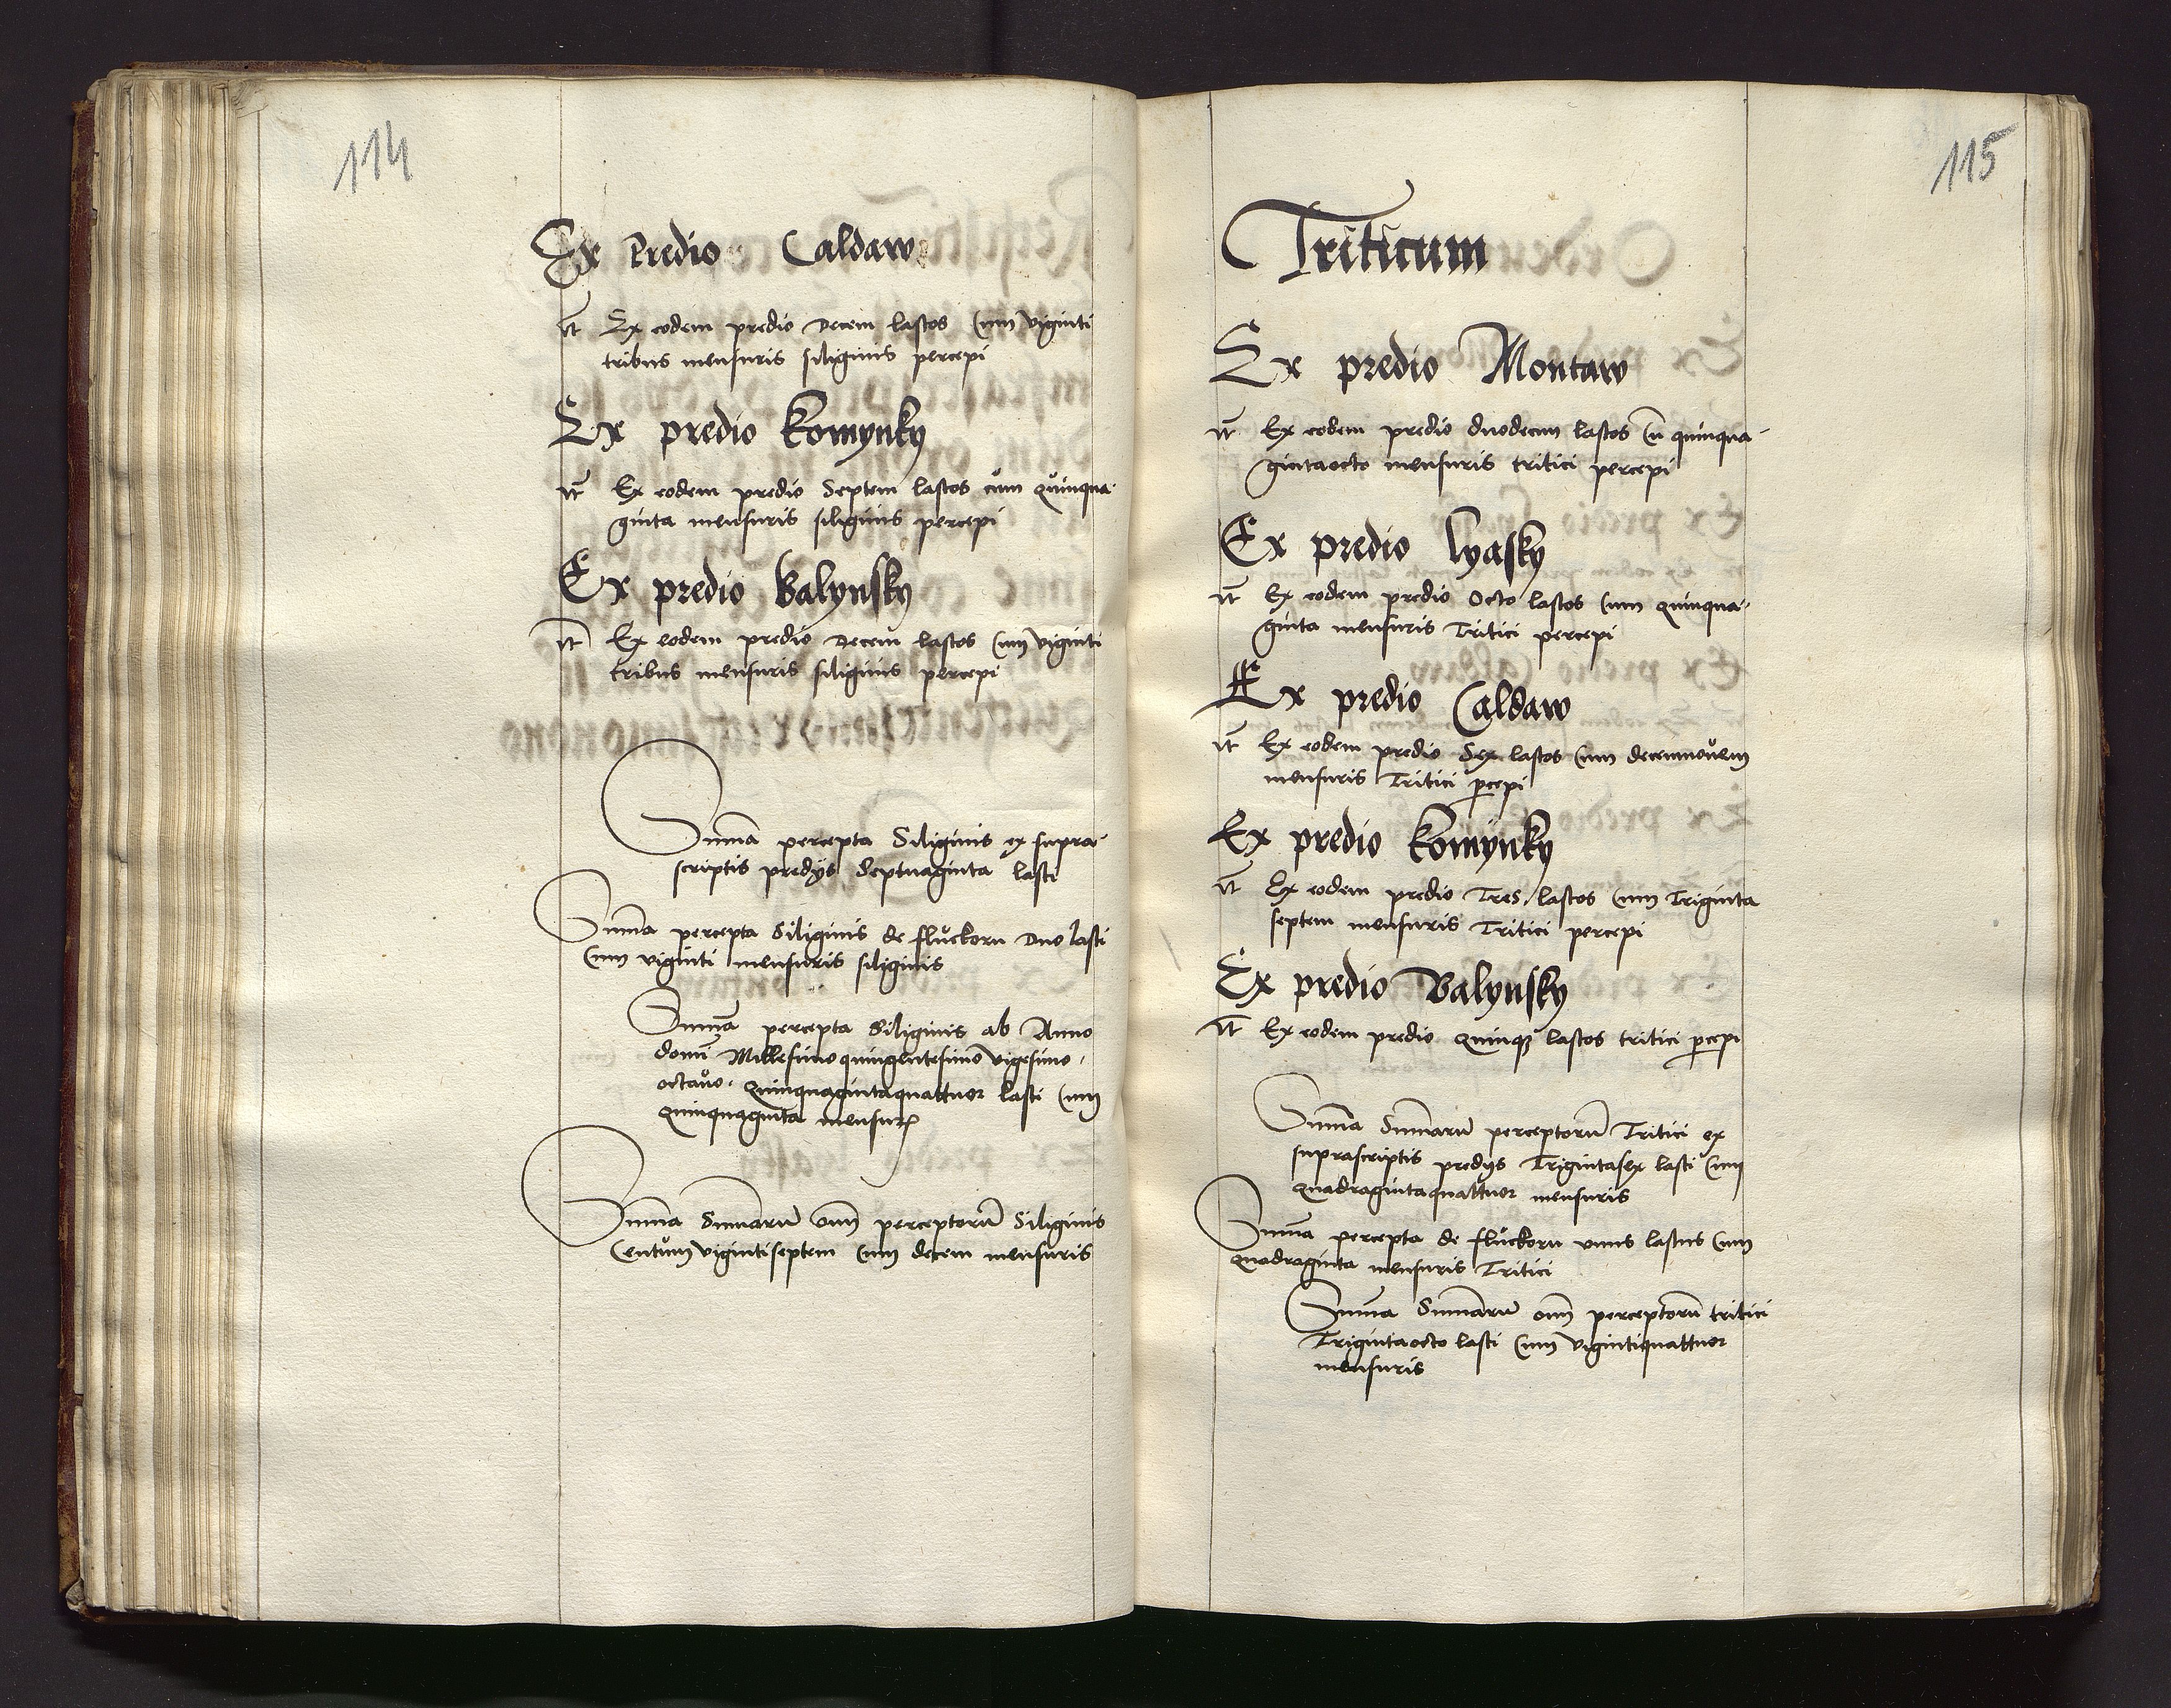 114
Ex Predio Caldaw
It Ex eodem predio Decem lastos Cum viginti
tribus mensuris siliginis percepi
Ex predio Komynky
It Ex eodem predio Septem lastos cum quinqua-
ginta mensuris siliginis percepi
Ex predio Balynsky
It Ex eodem predio Decem lastos Cum viginti
tribus mensuris siliginis percepi
Suma percepta Siliginis ex supra-
scriptis predijs Septuaginta lasti
Suma percepta Siliginis de fluckorn Duo lasti
Cum viginti mensuris siliginis
Suma percepta Siliginis ab Anno
domi Millesimo quingentesimo vigesimo
octavo. Quinquagintaquattuor lasti Cum
quinquaginta mensur
Suma Sumaru om perceptoru Siliginis
Centum vigintiseptem Cum decem mensuris
115
Triticum
Ex predio Montaw
It Ex eodem predio duodecim lastos Cu quinqua-
gintaocto mensuris tritici percepi
Ex predio Lyasky
It Ex eodem predio Octo lastos Cum quinqua-
ginta mensuris Tritici percepi
Ex predio Caldaw
It Ex eodem predio Sex lastos Cum decemnovem
mensuris Tritici pcepi
Ex predio Komynky
It Ex eodem predio Tres lastos Cum Triginta
septem mensuris Tritici percepi
Ex predio Balynsky
It Ex eodem predio quinqz lastos tritici pcepi
Suma Sumaru perceptoru Tritici ex
suprascriptis predijs Trigintasex lasti Cum
quadragintaquattuor mensuris
Suma percepta de fluckorn unus lastus Cum
quadraginta mensuris Tritici
Suma Sumaru om perceptoru tritici
Trigintaocto lasti Cum vigintiquattuor
mensuris